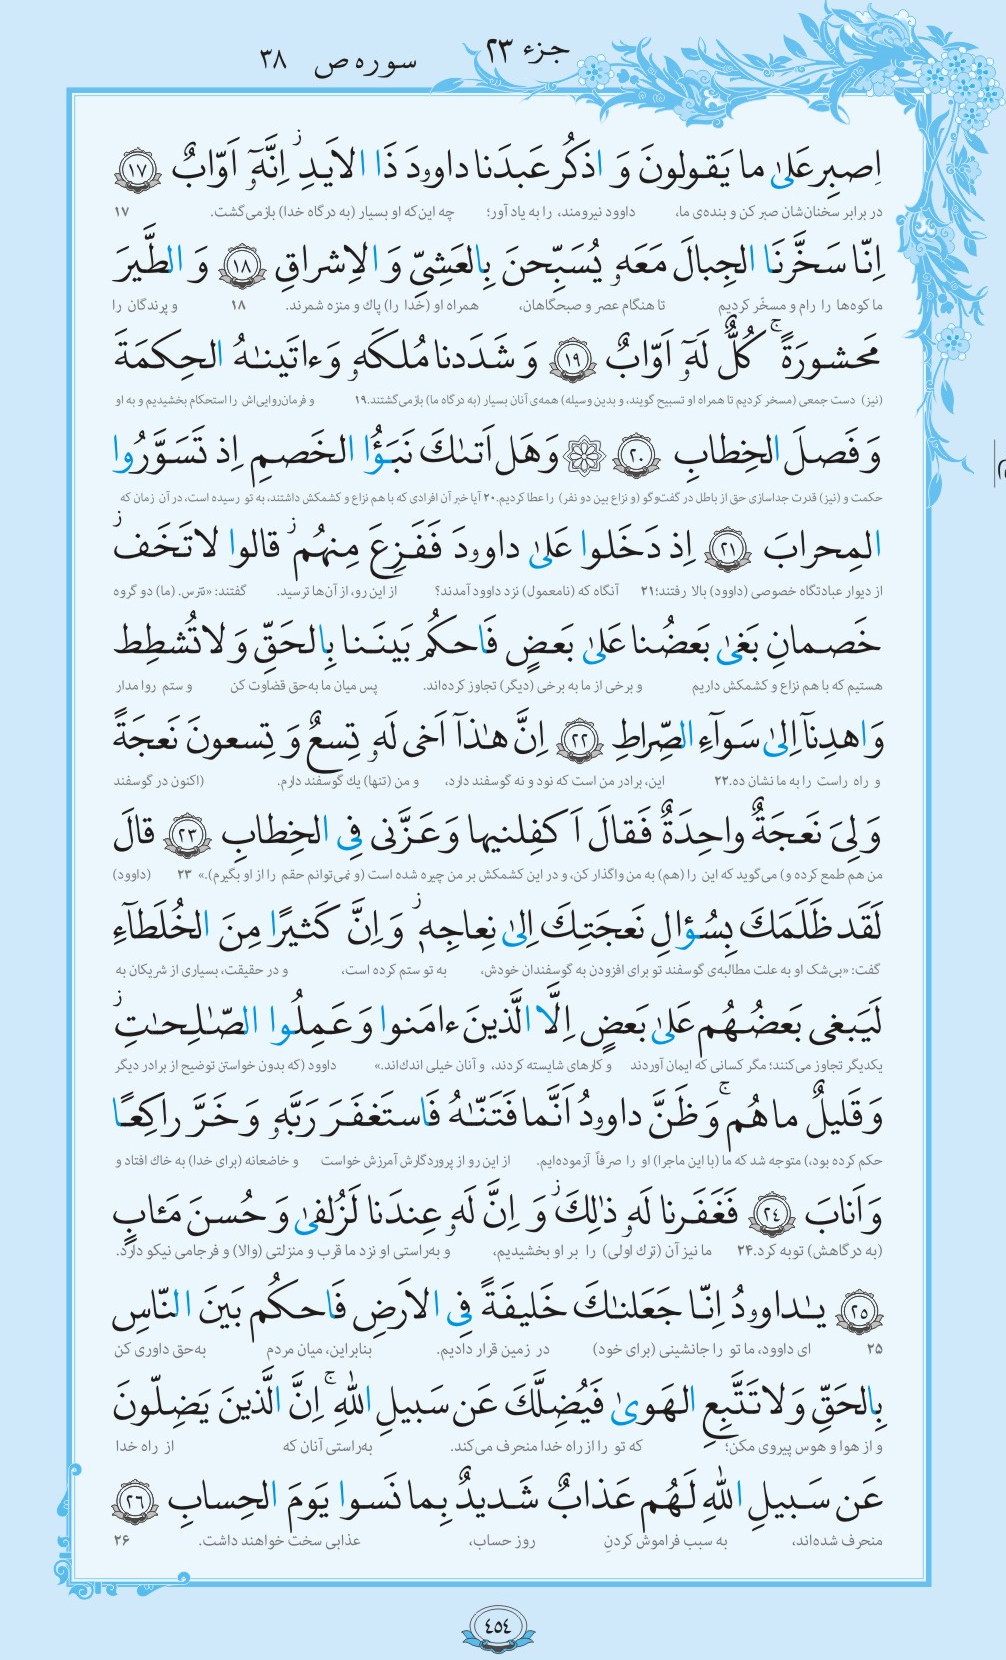 جزء ۲۳
سوره ص ۳۸
اِصبِر عَلىٰ ما يَقولونَ وَ اذكُر عَبدَنا داوودَ ذَا الاَيدِ ۖ اِنَّهٓ اَوّابٌ ﴿١٧﴾
در برابر سخنان‌شان صبر کن و بنده‌ی ما، داوود نیرومند، را به یاد آور؛ چه این‌که او بسیار (به درگاه خدا) بازمی‌گشت. ۱۷
اِنّا سَخَّرنَا الجِبالَ مَعَهٗ يُسَبِّحنَ بِالعَشِيِّ وَ الاِشراقِ ﴿١٨﴾ وَ الطَّيرَ
ما کوه‌ها را رام و مسخّر کردیم تا هنگام عصر و صبحگاهان، همراه او (خدا را) پاک و منزه شمرند. ۱۸ و پرندگان را
مَحشورَةً ۖ كُلٌّ لَهٓ اَوّابٌ ﴿١٩﴾ وَ شَدَدنا مُلكَهٗ وَ ءاتَينٰهُ الحِكمَةَ
(نیز) دست جمعی (مسخر کردیم تا همراه او تسبیح گویند، و بدین وسیله) همه‌ی آنان بسیار (به درگاه ما) بازمی‌گشتند.۱۹ و فرمان‌روایی‌اش را استحکام بخشیدیم و به او
وَ فَصلَ الخِطابِ ﴿٢٠﴾ ۞ وَ هَل اَتٰىكَ نَبَؤُا الخَصمِ اِذ تَسَوَّرُوا
حکمت و (نیز) قدرت جداسازی حق از باطل در گفت‌وگو (و نزاع بین دو نفر) را عطا کردیم.۲۰ آیا خبر آن افرادی که با هم نزاع و کشمکش داشتند، به تو رسیده است، در آن زمان که
المِحرابَ ﴿٢١﴾ اِذ دَخَلوا عَلىٰ داوودَ فَفَزِعَ مِنهُم ۖ قالوا لا تَخَف ۖ
از دیوار عبادتگاه خصوصی (داوود) بالا رفتند؛۲۱ آنگاه که (نامعمول) نزد داوود آمدند؟ از این رو، از آن‌ها ترسید. گفتند: «نترس. (ما) دو گروه
خَصمانِ بَغىٰ بَعضُنا عَلىٰ بَعضٍ فَاحكُم بَينَنا بِالحَقِّ وَ لا تُشطِط
هستیم که با هم نزاع و کشمکش داریم و برخی از ما به برخی (دیگر) تجاوز کرده‌اند. پس میان ما به‌حق قضاوت کن و ستم روا مدار
وَ اهدِنآ اِلىٰ سَوآءِ الصِّراطِ ﴿٢٢﴾ اِنَّ هٰذآ اَخى لَهٗ تِسعٌ وَ تِسعونَ نَعجَةً
و راه راست را به ما نشان ده.۲۲ این، برادر من است که نود و نه گوسفند دارد، و من (تنها) یک گوسفند دارم. (اکنون در گوسفند
وَ لِيَ نَعجَةٌ واحِدَةٌ فَقالَ اَكفِلنيها وَ عَزَّنى فِى الخِطابِ ﴿٢٣﴾ قالَ
من هم طمع کرده و) می‌گوید که این را (هم) به من واگذار کن، و در این کشمکش بر من چیره شده است (و نمی‌توانم حقم را از او بگیرم).» ۲۳ (داوود)
لَقَد ظَلَمَكَ بِسُؤالِ نَعجَتِكَ اِلىٰ نِعاجِهٖ ۖ وَ اِنَّ كَثيرًا مِنَ الخُلَطآءِ
گفت: «بی‌شک او به علت مطالبه‌ی گوسفند تو برای افزودن به گوسفندان خودش، به تو ستم کرده است، و در حقیقت، بسیاری از شریکان به
لَيَبغى بَعضُهُم عَلىٰ بَعضٍ اِلَّا الَّذينَ ءامَنوا وَ عَمِلُوا الصّٰلِحٰتِ ۖ
یکدیگر تجاوز می‌کنند؛ مگر کسانی که ایمان آوردند و کارهای شایسته کردند، و آنان خیلی اندک‌اند.» داوود (که بدون خواستن توضیح از برادر دیگر
وَ قَليلٌ ما هُم ۚ وَ ظَنَّ داوودُ اَنَّما فَتَنّٰهُ فَاستَغفَرَ رَبَّهٗ وَ خَرَّ راكِعًا
حکم کرده بود،) متوجه شد که ما (با این ماجرا) او را صرفاً آزموده‌ایم. از این رو از پروردگارش آمرزش خواست و خاضعانه (برای خدا) به خاک افتاد و
وَ اَنابَ ﴿٢٤﴾ فَغَفَرنا لَهٗ ذٰلِكَ ۖ وَ اِنَّ لَهٗ عِندَنا لَزُلفىٰ وَ حُسنَ مَـٔابٍ
(به درگاهش) توبه کرد.۲۴ ما نیز آن (ترک اولی) را بر او بخشیدیم، و به‌راستی او نزد ما قرب و منزلتی (والا) و فرجامی نیکو دارد.
﴿٢٥﴾ يٰداوودُ اِنّا جَعَلنٰكَ خَليفَةً فِى الاَرضِ فَاحكُم بَينَ النّاسِ
۲۵ ای داوود، ما تو را جانشینی (برای خود) در زمین قرار دادیم. بنابراین، میان مردم به‌حق داوری کن
بِالحَقِّ وَ لا تَتَّبِعِ الهَوىٰ فَيُضِلَّكَ عَن سَبيلِ اللهِ ۚ اِنَّ الَّذينَ يَضِلّونَ
و از هوا و هوس پیروی مکن؛ که تو را از راه خدا منحرف می‌کند. به‌راستی آنان که از راه خدا
عَن سَبيلِ اللهِ لَهُم عَذابٌ شَديدٌ بِما نَسوا يَومَ الحِسابِ ﴿٢٦﴾
منحرف شده‌اند، به سبب فراموش کردنِ روز حساب، عذابی سخت خواهند داشت. ۲۶
٤٥٤